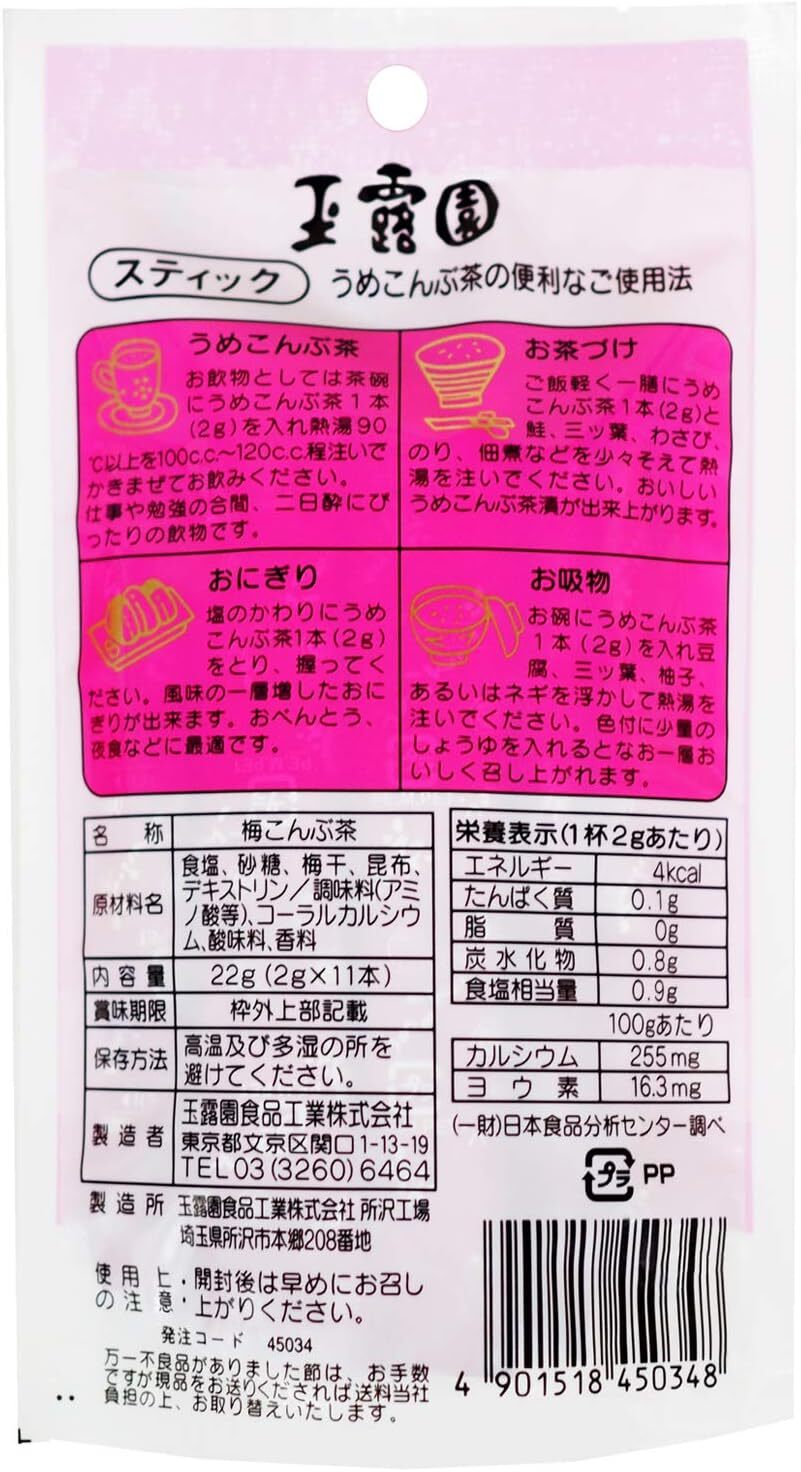 玉露園
スティック うめこんぶ茶の便利なご使用法
うめこんぶ茶
お飲物としては茶碗
にうめこんぶ茶1本
(2g)を入れ熱湯90
℃以上を100c.c.〜120c.c.程注いで
かきまぜてお飲みください。
仕事や勉強の合間、二日酔にぴ
ったりの飲物です。
お茶づけ
ご飯軽く一膳にうめ
こんぶ茶1本(2g)と
鮭、三ッ葉、わさび、
のり、佃煮などを少々そえて熱
湯を注いでください。おいしい
うめこんぶ茶漬が出来上がります。
おにぎり
塩のかわりにうめ
こんぶ茶1本(2g)
をとり、握ってく
ださい。風味の一層増したおに
ぎりが出来ます。おべんとう、
夜食などに最適です。
お吸物
お碗にうめこんぶ茶
1本(2g)を入れ豆
腐、三ッ葉、柚子、
あるいはネギを浮かして熱湯を
注いでください。色付に少量の
しょうゆを入れるとなお一層お
いしく召し上がれます。
名称 梅こんぶ茶
原材料名 食塩、砂糖、梅干、昆布、
デキストリン/調味料(アミ
ノ酸等)、コーラルカルシウ
ム、酸味料、香料
内容量 22g(2g×11本)
賞味期限 枠外上部記載
保存方法 高温及び多湿の所を
避けてください。
製造者 玉露園食品工業株式会社
東京都文京区関口1-13-19
TEL03(3260)6464
製造所 玉露園食品工業株式会社 所沢工場
埼玉県所沢市本郷208番地
使用上の注意
・開封後は早めにお召し
上がりください。
発注コード 45034
万一不良品がありました節は、お手数
ですが現品をお送りくだされば送料当社
負担の上、お取り替えいたします。
栄養表示(1杯2gあたり)
エネルギー 4kcal
たんぱく質 0.1g
脂質 0g
炭水化物 0.8g
食塩相当量 0.9g
100gあたり
カルシウム 255mg
ヨウ素 16.3mg
(一財)日本食品分析センター調べ
プラ PP
4 901518 450348